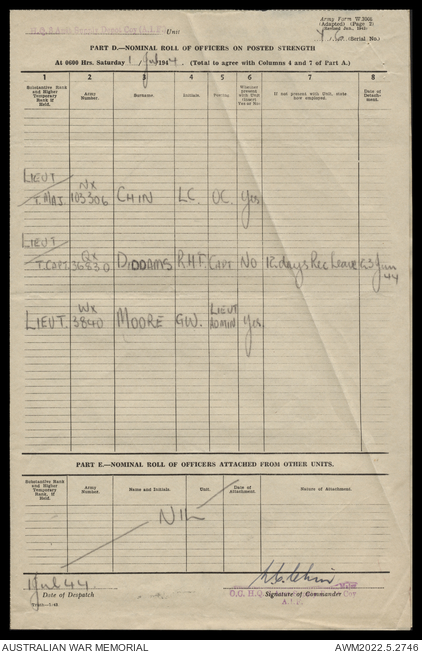 Army Form W 3008
(Adapted) (Page 2)
(Serial No.)
H.Q. 2 Aust Supply Depot Coy (A.I.F.) Unit
PART D.—NOMINAL ROLL OF OFFICERS ON POSTED STRENGTH
At 0600 Hrs. Saturday 1 Jul 1944. (Total to agree with Columns 4 and 7 of Part A.)
1 2 3 4 5 6 7 8
Substantive Rank and Higher Temporary Rank if Held. Army Number. Surname. Initials. Posting. Whether present with Unit (Insert Yes or No) If not present with Unit, state how employed. Date of Detachment.
LIEUT
T.MAJ. NX 103306 CHIN L C. OC. Yes
LIEUT
T.CAPT. QX 36830 DIDDAMS R H T. CAPT NO 12 days Rec Leave 23 Jun 44
LIEUT. WX 3840 MOORE GW. LIEUT ADMIN Yes.
PART E.—NOMINAL ROLL OF OFFICERS ATTACHED FROM OTHER UNITS.
Substantive Rank and Higher Temporary Rank, if Held. Army Number. Name and Initials. Unit. Date of Attachment. Nature of Attachment.
NIL
1 Jul 44
Date of Despatch
L C Chin Major
O.C. H.Q. Coy
Signature of Commander
A.I.F.
AUSTRALIAN WAR MEMORIAL AWM2022.5.2746